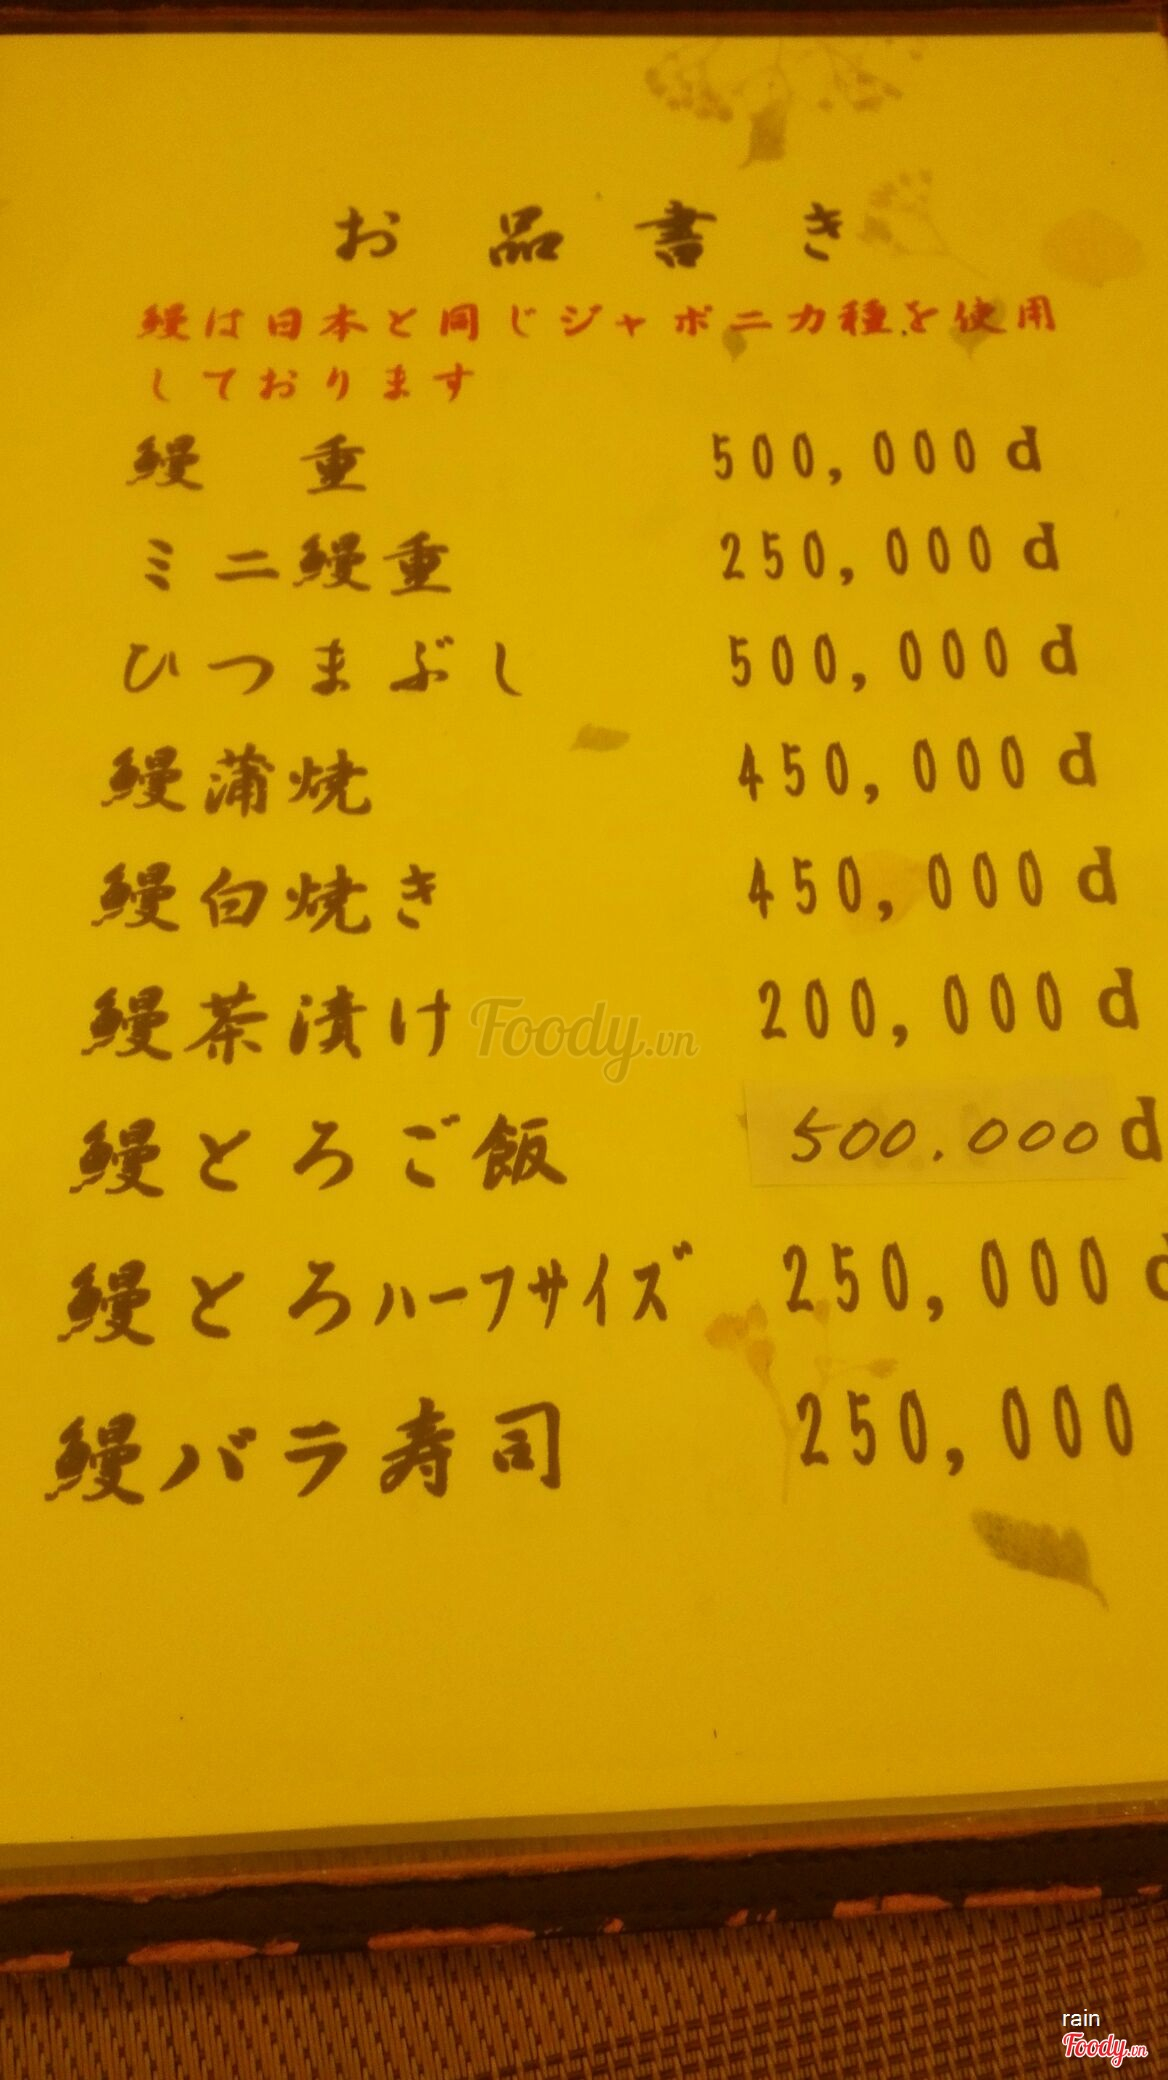 お品書き
鰻は日本と同じジャポニカ種を使用
しております
鰻 重 500,000d
ミニ鰻重 250,000d
ひつまぶし 500,000d
鰻蒲焼 450,000d
鰻白焼き 450,000d
鰻茶漬け 200,000d
鰻とろご飯 500.000d
鰻とろハーフサイズ 250,000d
鰻バラ寿司 250,000
Foody.vn
rain
Foody.vn